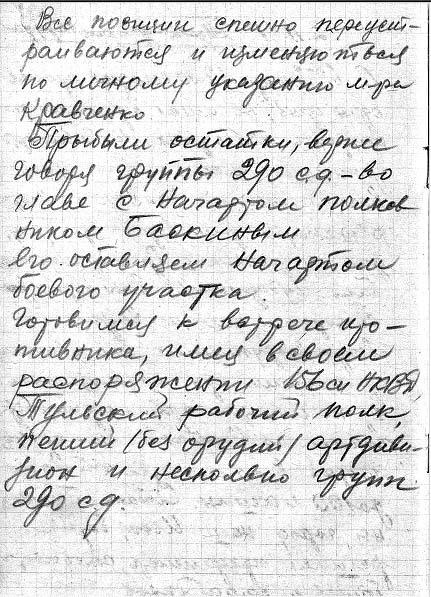 Все позиции спешно переуст-
раиваются и изменяються
по личному указанию м-ра
Кравченко
Прибыли остатки, вернее
говоря группы 290 с.д. - во
главе с Начартом полков
ником Баскиным
Его оставляем Начартом
боевого участка.
Готовимся к встрече про-
тивника, имея в своем
распоряжении 156 сп НКВД,
Тульский рабочий полк,
пеший /без орудий/ артдиви-
зион и несколько групп
290 с.д.